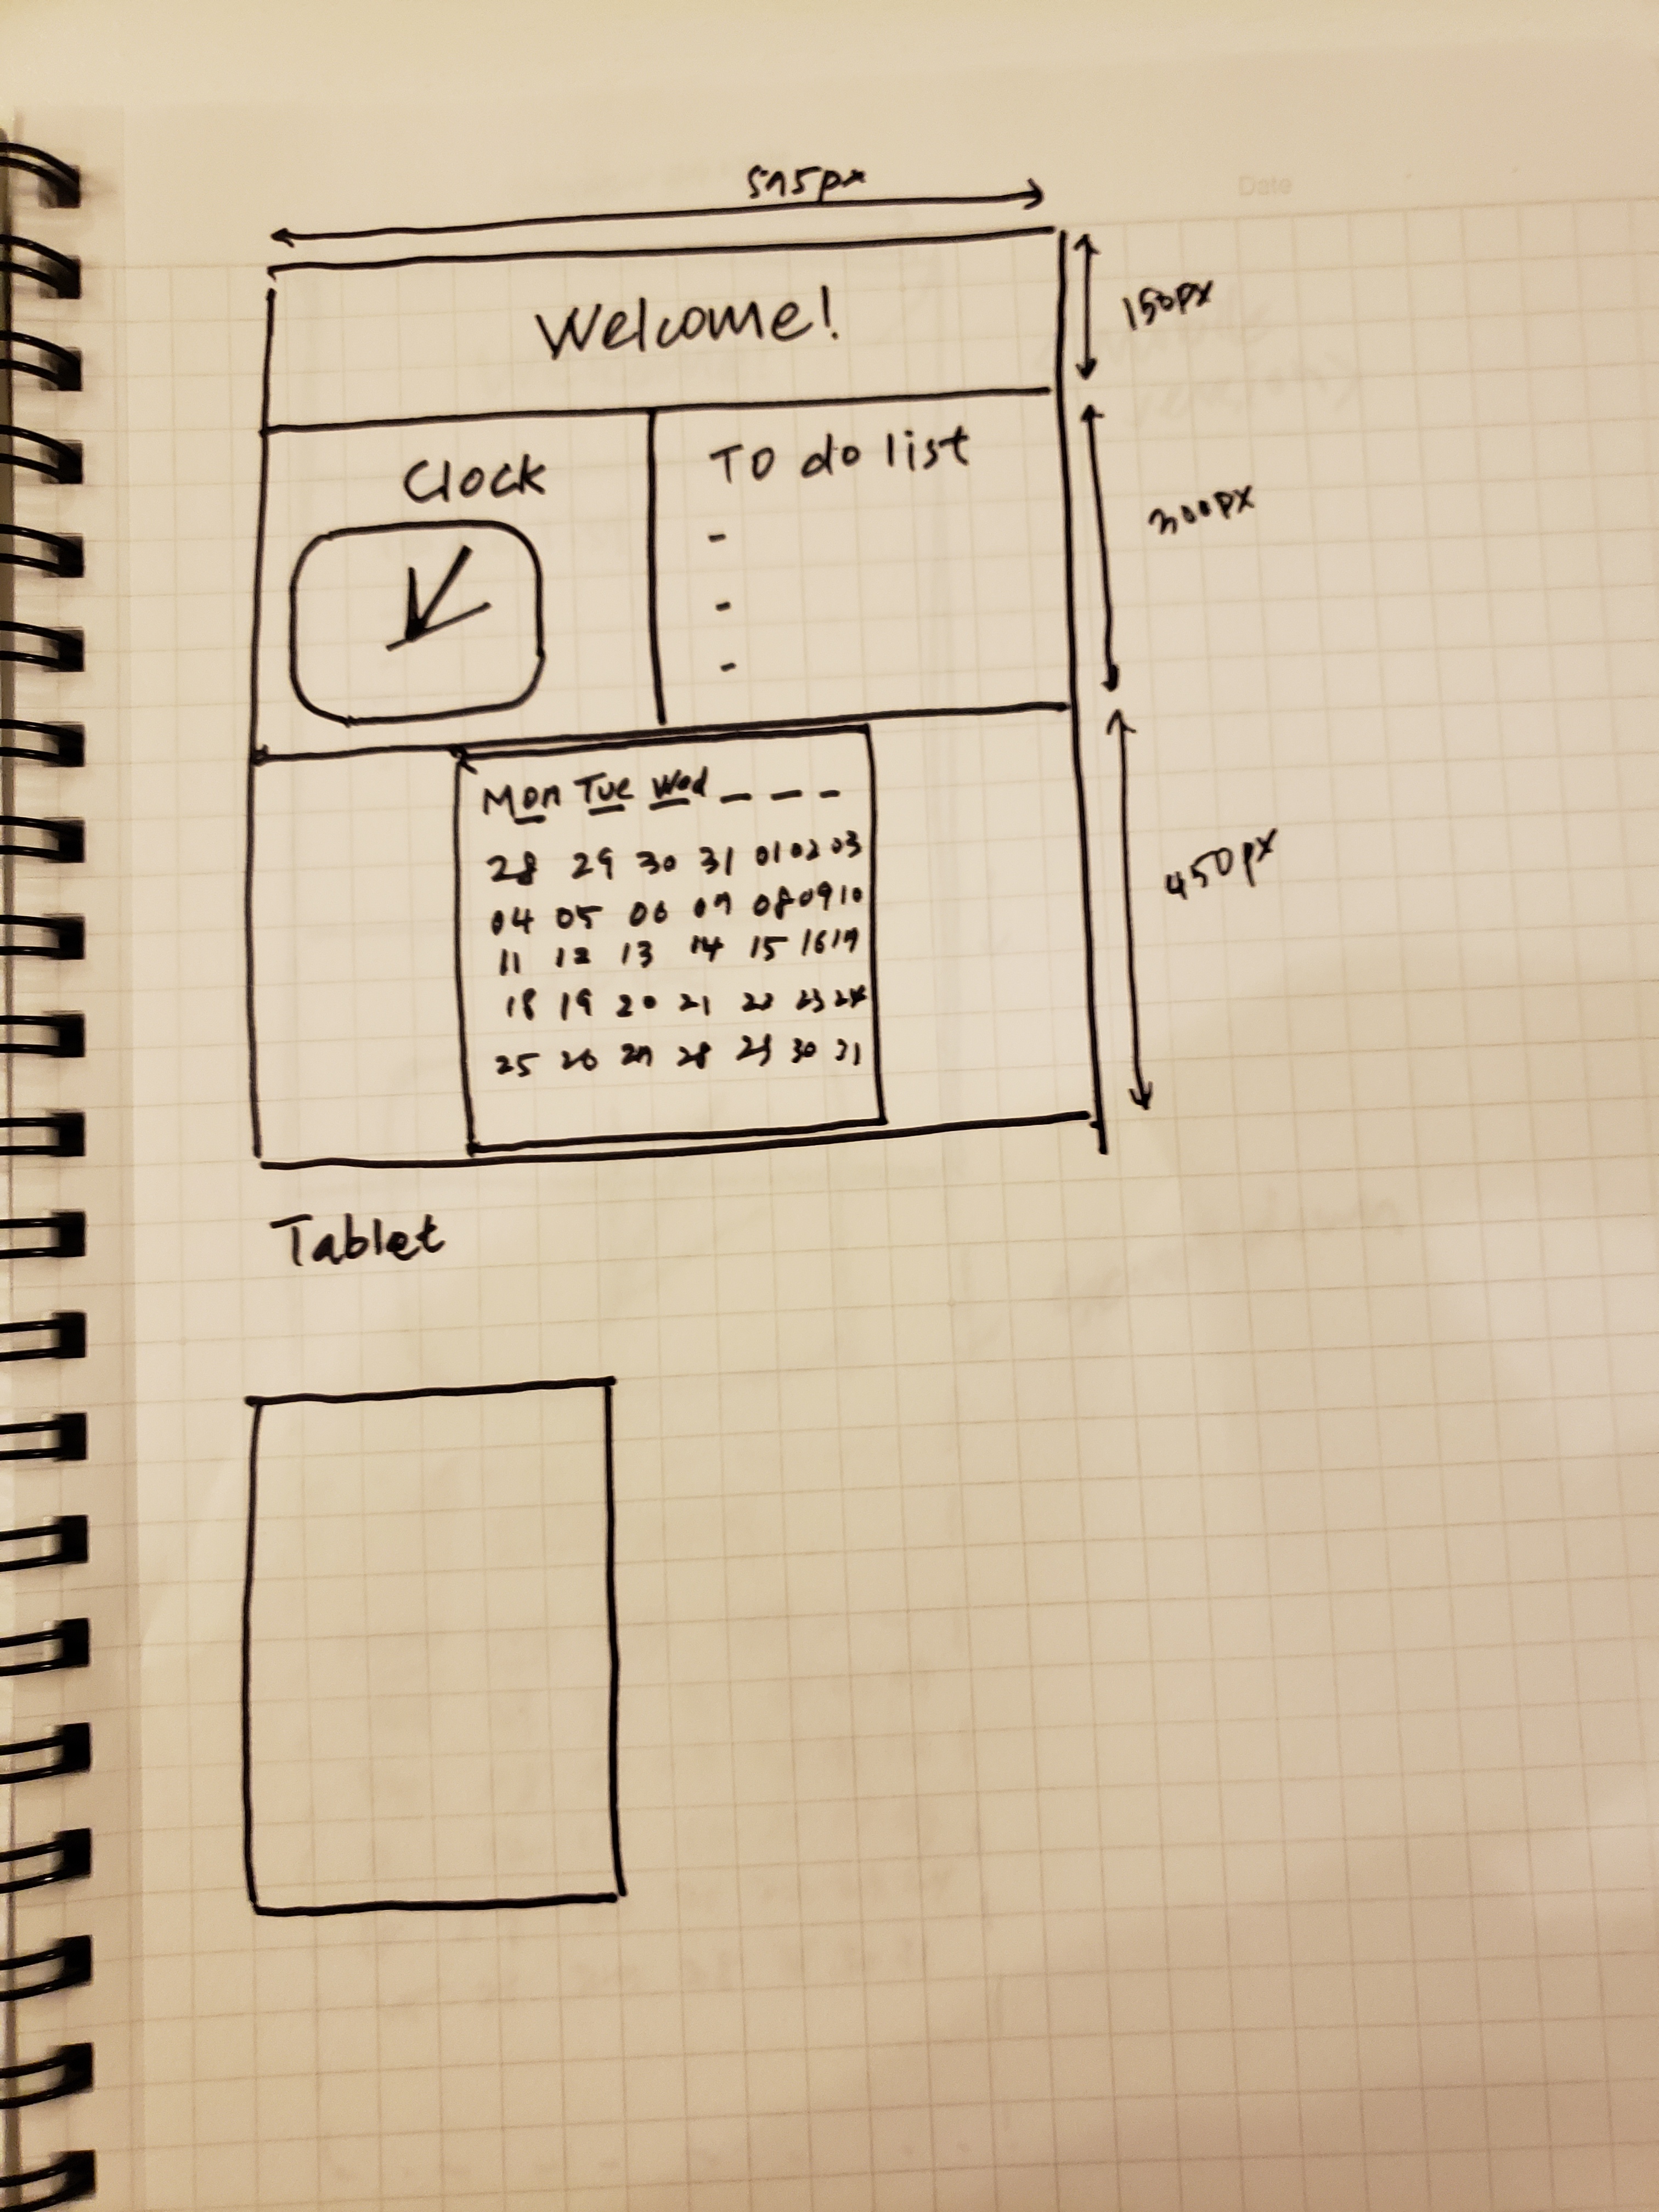 Date
575px
Welcome!
150px
Clock
TO do list
-
-
-
300px
Mon Tue Wed _ _ _
28 29 30 31 01 02 03
04 05 06 07 08 09 10
11 12 13 14 15 16 17
18 19 20 21 22 23 24
25 26 27 28 29 30 31
450px
Tablet